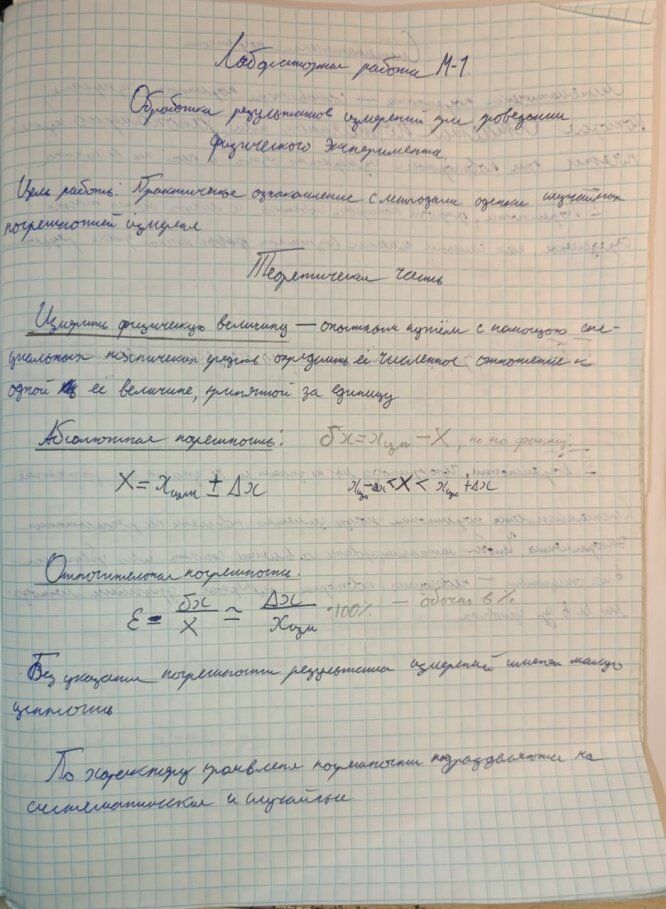 Лабораторная работа М-1.
Обработка результатов измерений при проведении
физического эксперимента.
Цель работы: Практическое ознакомление с методами оценки случайных
погрешностей измерения
Теоретическая часть
Измерить физическую величину — опытным путём с помощью спе-
циальных технических средств определить её численное отношение к
одной её величине, принятой за единицу
Абсолютная погрешность: δx = xизм − X, но по факту:
X = xизм ± Δx xизм − Δx < X < xизм + Δx
Относительная погрешность:
ε = δx/X ≃ Δx/xизм · 100% — обычно в %
Без указания погрешности результаты измерений имеют малую
ценность
По характеру проявления погрешности подразделяются на
систематические и случайные.